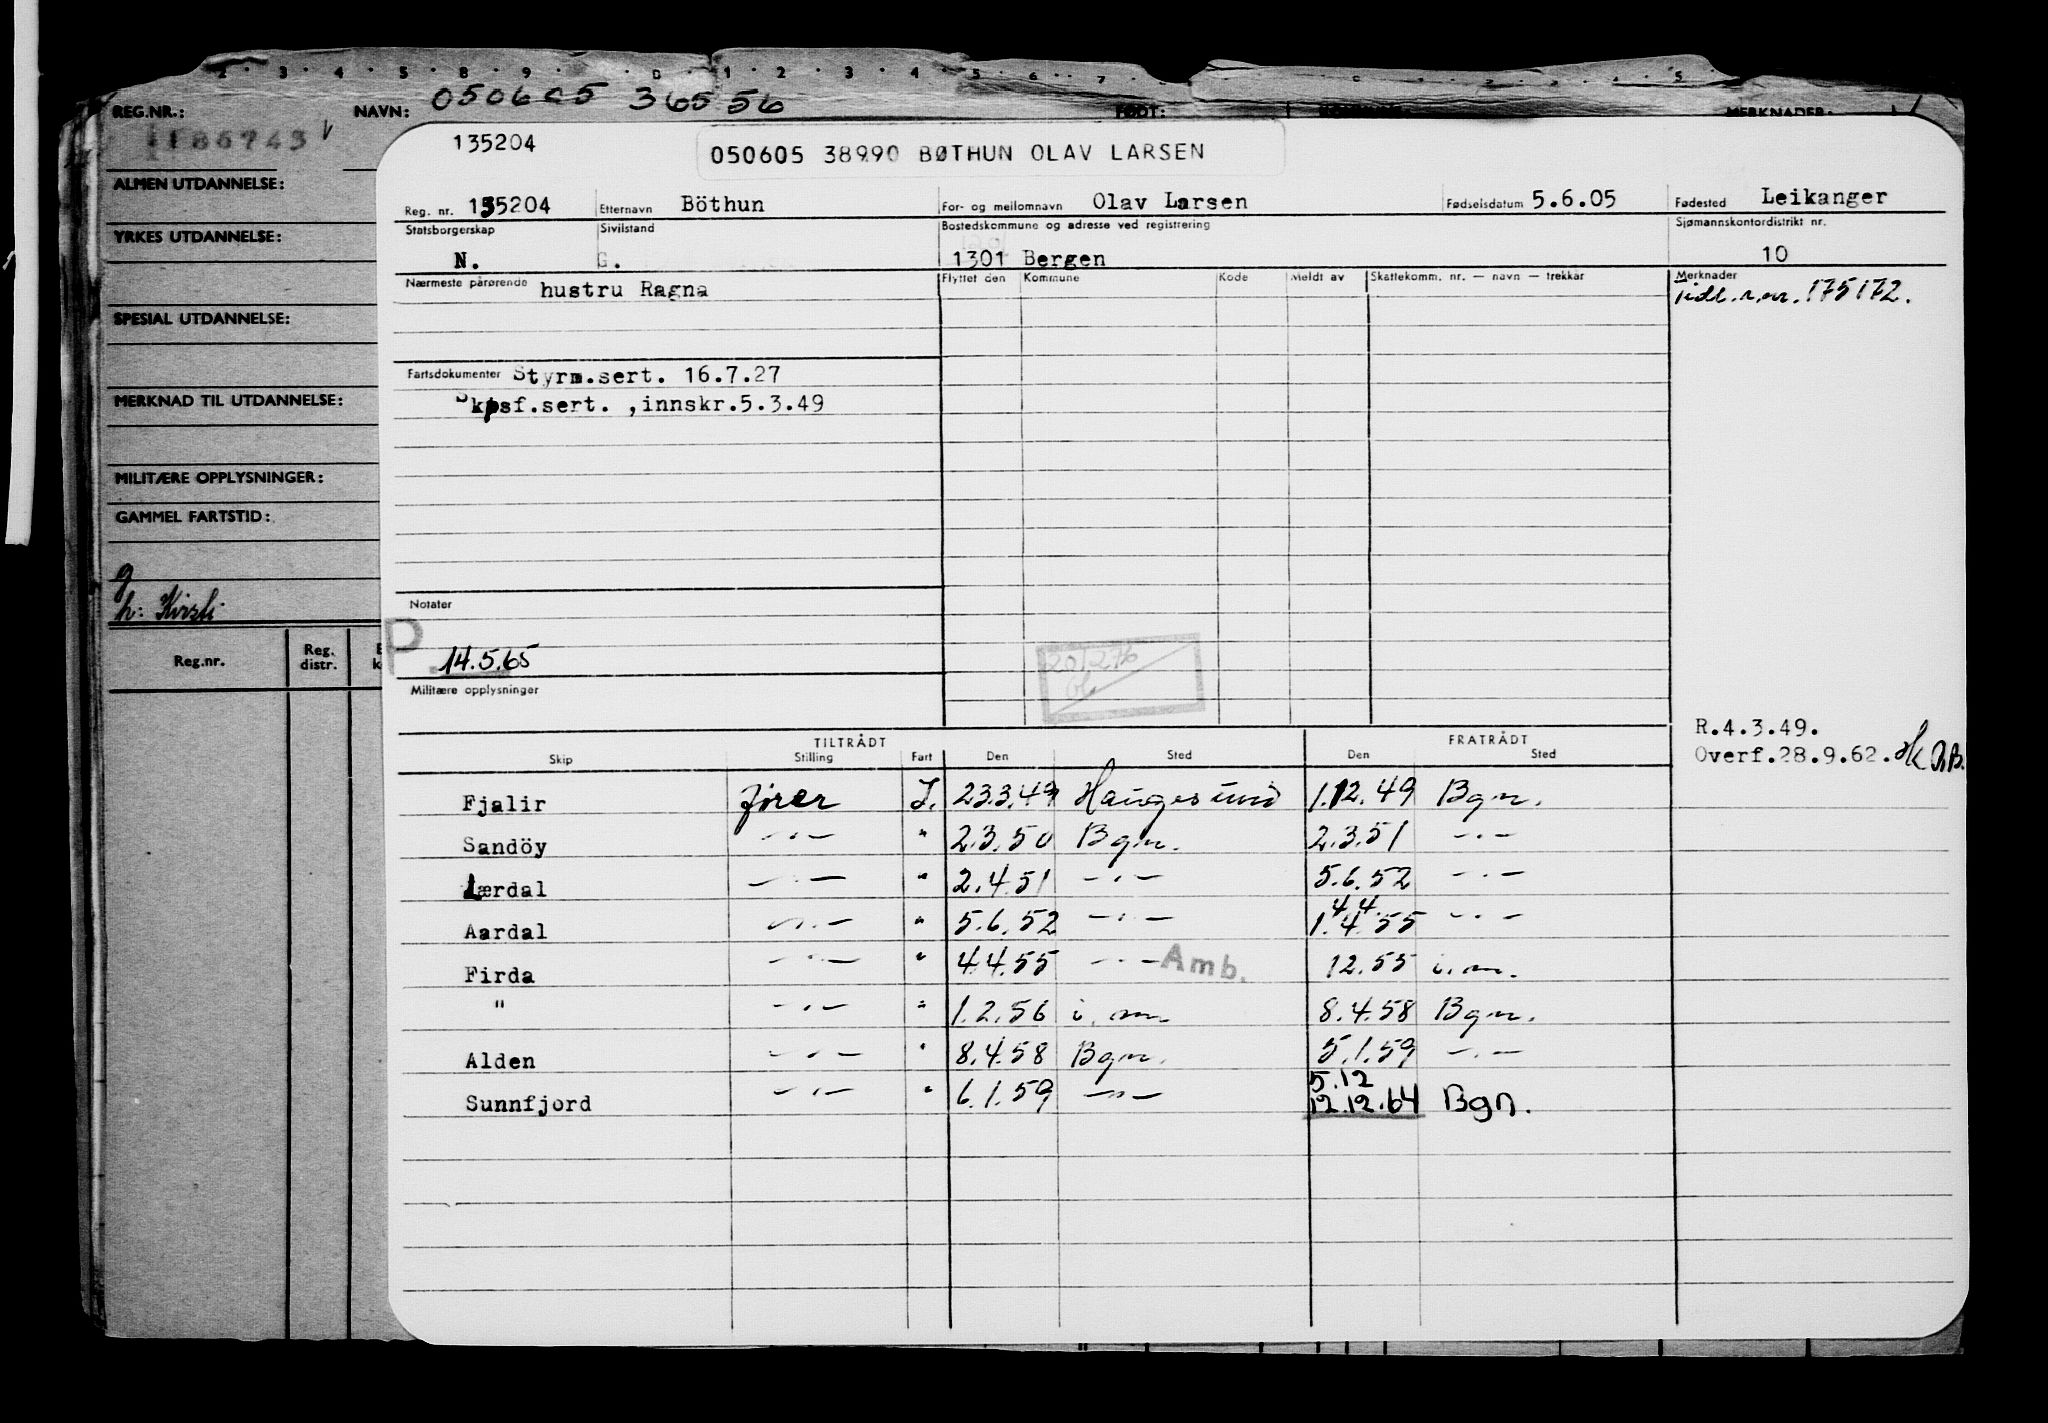 REG.NR.: NAVN: 050605 36556 FØDT: MERKNADER:
186743
ALMEN UTDANNELSE:
YRKES UTDANNELSE:
SPESIAL UTDANNELSE:
MERKNAD TIL UTDANNELSE:
MILITÆRE OPPLYSNINGER:
GAMMEL FARTSTID:
g
h: Kirsti
Reg.nr. Reg. distr.
135204
050605 38990 BØTHUN OLAV LARSEN
Reg. nr. 135204 Etternavn Böthun For- og mellomnavn Olav Larsen Fødselsdatum 5.6.05 Fødested Leikanger
Statsborgerskap Sivilstand Bostedskommune og adresse ved registrering Sjømannskontordistrikt nr.
N. G. 1301 Bergen 10
Nærmeste pårørende hustru Ragna Flyttet den Kommune Kode Meldt av Skattekomm. nr. — navn — trekkår Merknader
Tidl. r.nr. 175172.
Fartsdokumenter Styrm.sert. 16.7.27
Skpsf.sert. ,innskr.5.3.49
Notater
P. 14.5.65
201276
Militære opplysninger
R.4.3.49.
Overf.28.9.62.
TILTRÅDT FRATRÅDT
Skip Stilling Fart Den Sted Den Sted
Fjalir fører I. 23.3.49 Haugesund 1.12.49 Bgn.
Sandöy —·— " 2.3.50 Bgn. 2.3.51 —·—
Lærdal —·— " 2.4.51 —·— 5.6.52 —·—
Aardal —·— " 5.6.52 —·— 4.4. 1.4.55 —·—
Firda —·— " 4.4.55 —·— Amb. 12.55 i.m.
" —·— " 1.2.56 i.m. 8.4.58 Bgn.
Alden —·— " 8.4.58 Bgn. 5.1.59 —·—
Sunnfjord —·— " 6.1.59 —·— 5.12 12.12.64 Bgn.